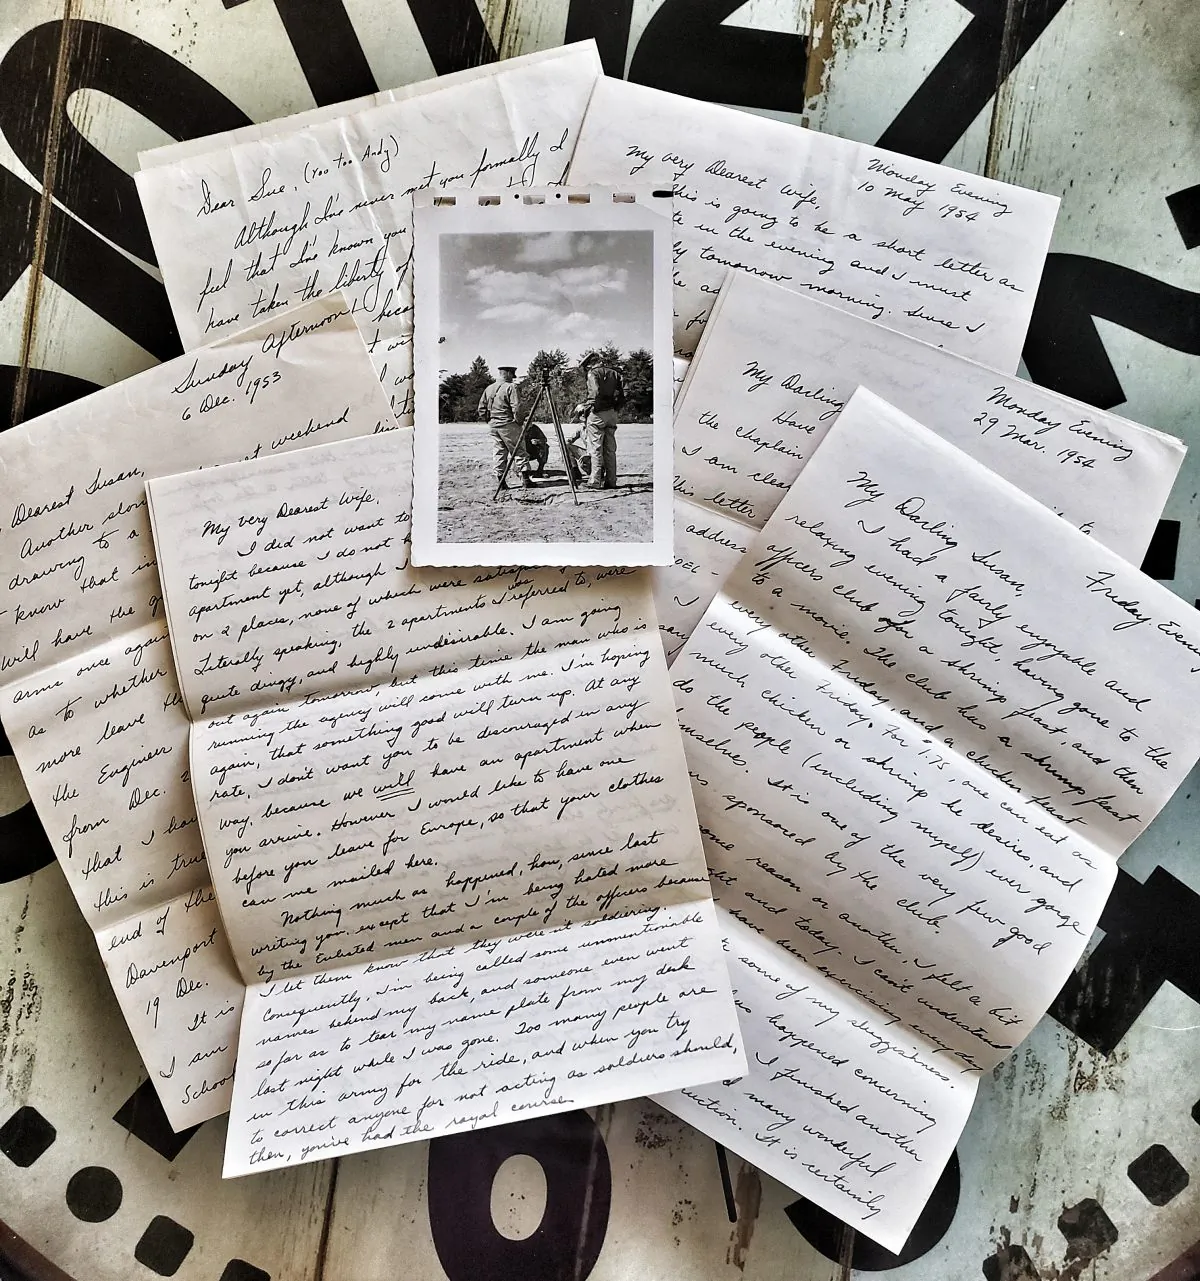 Dear Sue, (You Too Andy)
Although I've never met you formally I
feel that I've known you
have taken the liberty of
beca
Monday Evening
10 May 1954
My very Dearest Wife,
this is going to be a short letter as
te in the evening and I must
ly tomorrow morning. Since I
Sunday Afternoon
6 Dec. 1953
Dearest Susan,
Another slow weekend
drawing to a
know that in
will have the g
arms once again
as to whether
more leave the
the Engineer
from Dec. 2
that I hav
this is true
end of the
Davenport
19 Dec.
It is
I am
School
Monday Evening
29 Mar. 1954
My Darling
Have
the chaplain
I am clea
this letter
address
My very Dearest Wife,
I did not want to
tonight because I do not h
apartment yet, although I
on 2 places, none of which were satisf
Literally speaking, the 2 apartments I referred to, were
quite dingy, and highly undesirable. I am going
out again tomorrow, but this time the man who is
running the agency will come with me. I'm hoping
again, that something good will turn up. At any
rate, I don't want you to be discouraged in any
way, because we will have an apartment when
you arrive. However I would like to have one
before you leave for Europe, so that your clothes
can me mailed here.
Nothing much as happened, hon, since last
writing you, except that I'm being hated more
by the Enlisted men and a couple of the officers because
I let them know that they were'nt soldiering.
Consequently, I'm being called some unmentionable
names behind my back, and someone even went
so far as to tear my name plate from my desk
last night while I was gone. Too many people are
in this army for the ride, and when you try
to correct anyone for not acting as soldiers should,
then, you've had the royal course
Friday Eveni
My Darling Susan,
I had a fairly enjoyable and
relaxing evening tonight, having gone to the
officers club for a shrimp feast, and then
to a movie. The club has a shrimp feast
every other Friday, and a chicken feast
every other Friday. For $1.75, one can eat as
much chicken or shrimp he desires, and
do the people (including myself) ever gorge
mselves. It is one of the very few good
s sponsored by the club.
ome reason or another, I felt a bit
ht and today. I can't understand
have been exercising every day
some of my sluggishness.
has happened concerning
I finished another
d many wonderful
uction. It is certainly